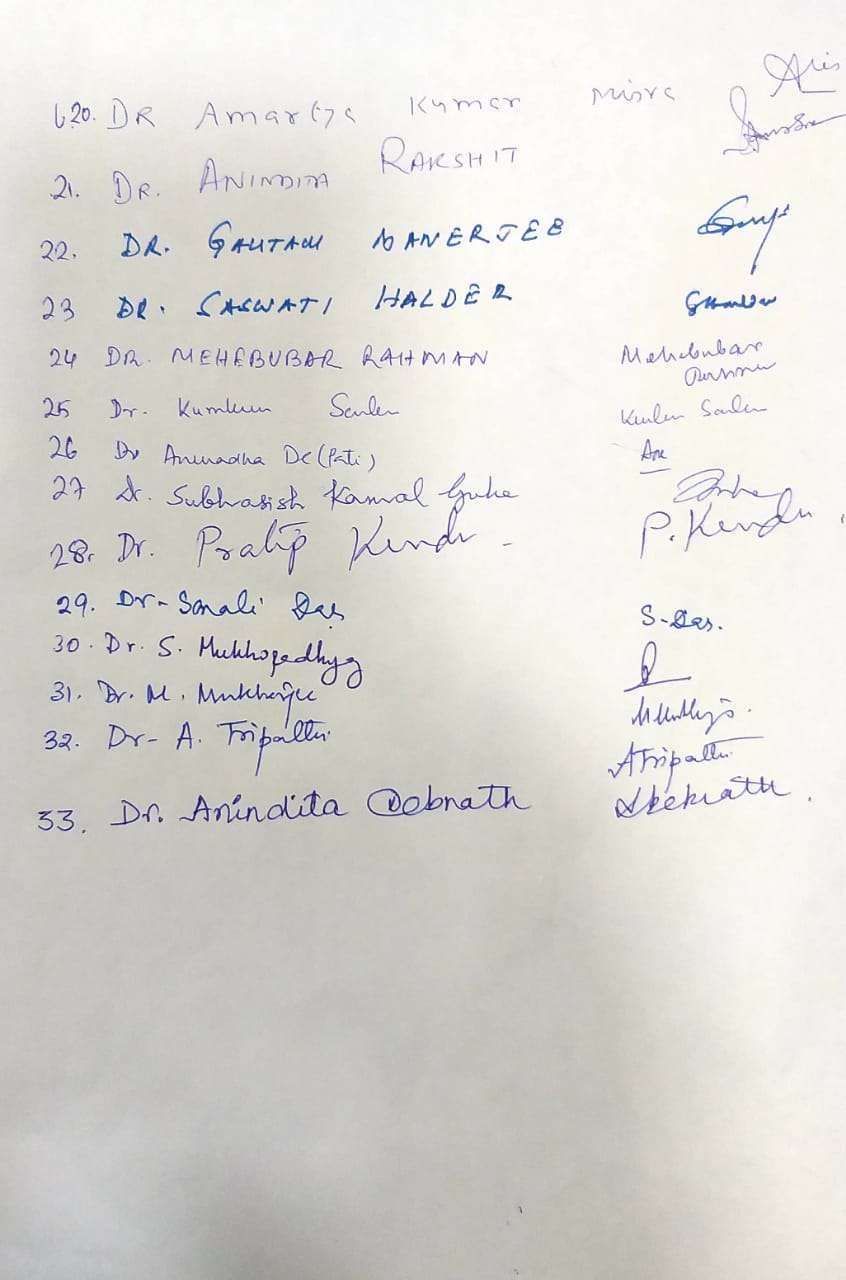 20. DR Amartya Kumar Misra
21. DR. ANINDITA RAKSHIT
22. DR. GAUTAM BANERJEE
23 DR. SASWATI HALDER
24 DR. MEHEBUBAR RAHMAN Mehebubar Rahman
25 Dr. Kumkum Sarkar
26 Dr Anuradha De (Pati)
27 Dr. Subhasish Kamal Guha
28. Dr. Pratip Kundu - P. Kundu
29. Dr- Sonali Das S-Das.
30. Dr. S. Mukhopadhyay
31. Dr. M. Mukherjee
32. Dr- A. Tripathi ATripathi
33. Dr. Anindita Debnath